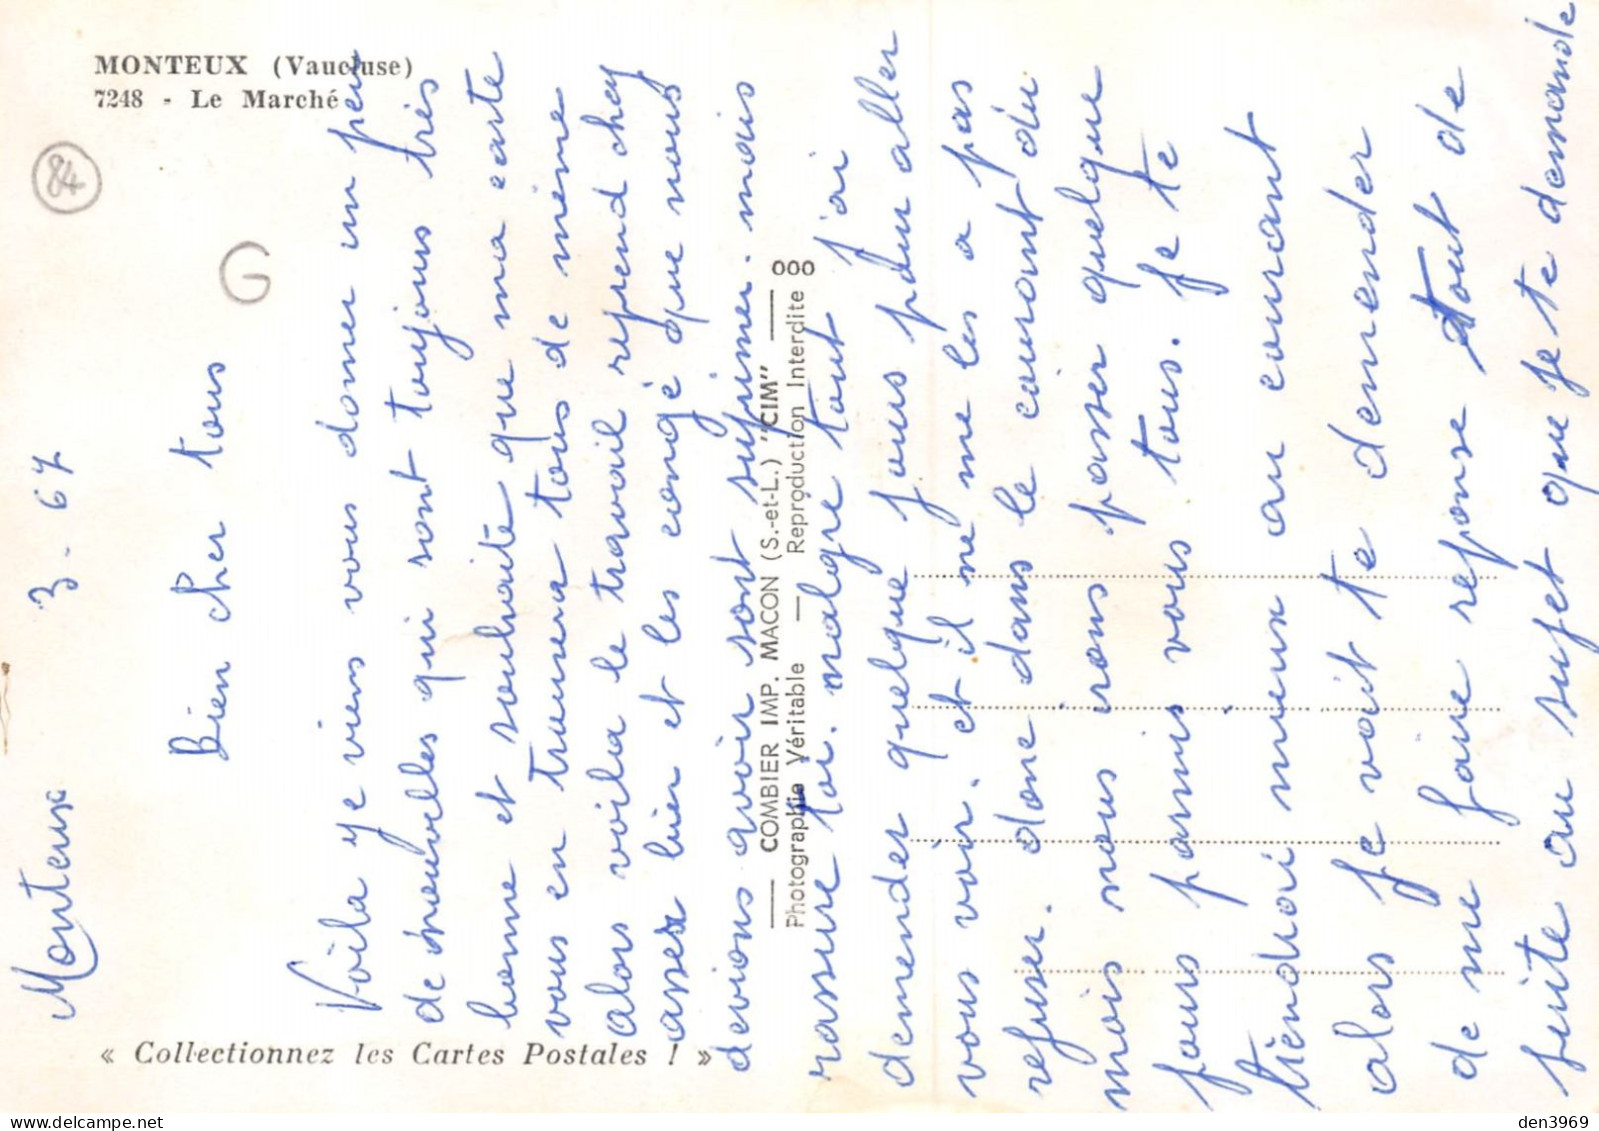 MONTEUX (Vaucluse)
7248 - Le Marché
84
G
Monteux 3-67
Bien cher tous
Voila ye viens vous donner un peu
de nouvelles qui sont toujours très
bonne et souhaite que ma carte
vous en trouvera tous de même
alors voila le travail reprend chez
assez bien et les congé que nous
devions avoir sont suprimer. mais
rassure toi. malgre tout j'ai
demander quelque jours pour aller
vous voir. et il ne me les a pas
refuser. donc dans le courant du
mois nous irons passer quelque
jours parmis vous tous. je te
tiendrai mieux au courant
alors je voit te demender
de me faire reponse tout de
suite au sujet que je te demande
COMBIER IMP. MACON (S.-et-L.) "CIM"
Photographie Véritable — Reproduction Interdite
000
« Collectionnez les Cartes Postales ! »
den3969